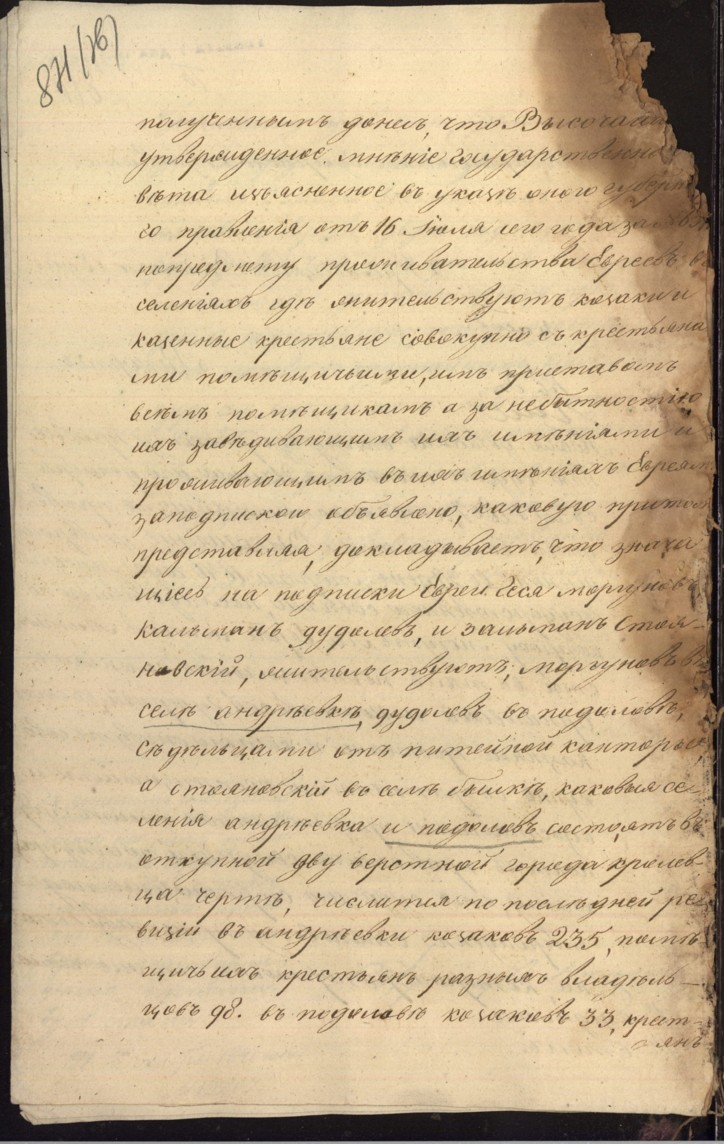 871 (76)
полученнымъ донесъ, что Высочайш
утвержденное мнѣніе Государственна
вѣта изъясненное въ указѣ оного губерн
го правленія отъ 16 Іюля сего года за
попредмету проживательства Евреевъ в
селеніяхъ гдѣ жительствуютъ козаки и
казенные крестьяне совокупно съ крестьяна
ми помѣщичьими, имъ приставомъ
всѣмъ помѣщикамъ а за небытностію
ихъ завѣдивающимъ ихъ имѣніями и
проживающимъ въ ихъ имѣніяхъ Евреям
заподпискою объявлено, каковую притом
представляя, докладываетъ, что значу
щіесь на подписки Евреи Еся моргуновъ
Калманъ дудолевъ, и залманъ Стоя-
новскій, жительствуютъ, моргуновъ в
селѣ андрѣевкѣ, дудолевъ въ подоловѣ,
сѣдѣльцами отъ питейной канторы,
а стояновскій въ селѣ быикѣ, каковыя се-
ленія андрѣевка и подоловъ состоятъ въ
откупной дву верстной города кролев-
ца чертѣ, числится по послѣдней ре-
визіи въ андрѣевки козаковъ 235, помѣ
щичьихъ крестьянъ разныхъ владѣль-
цовъ 98. въ подоловѣ козаковъ 33, крест-
янъ